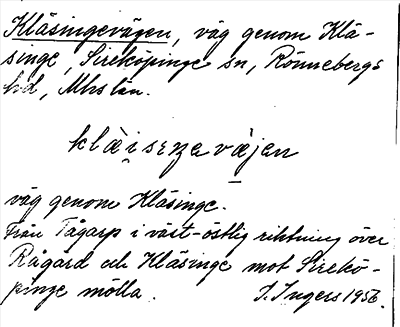 Kläsingevägen, väg genom Klä-
singe, Sireköpinge sn, Rönnebergs
hd, Mhs län.
klæi̯sɛŋavæjan
väg genom Kläsinge.
Från Tågarp i väst-östlig riktning över
Rågård och Kläsinge mot Sirekö-
pinge mölla. I. Ingers 1956.